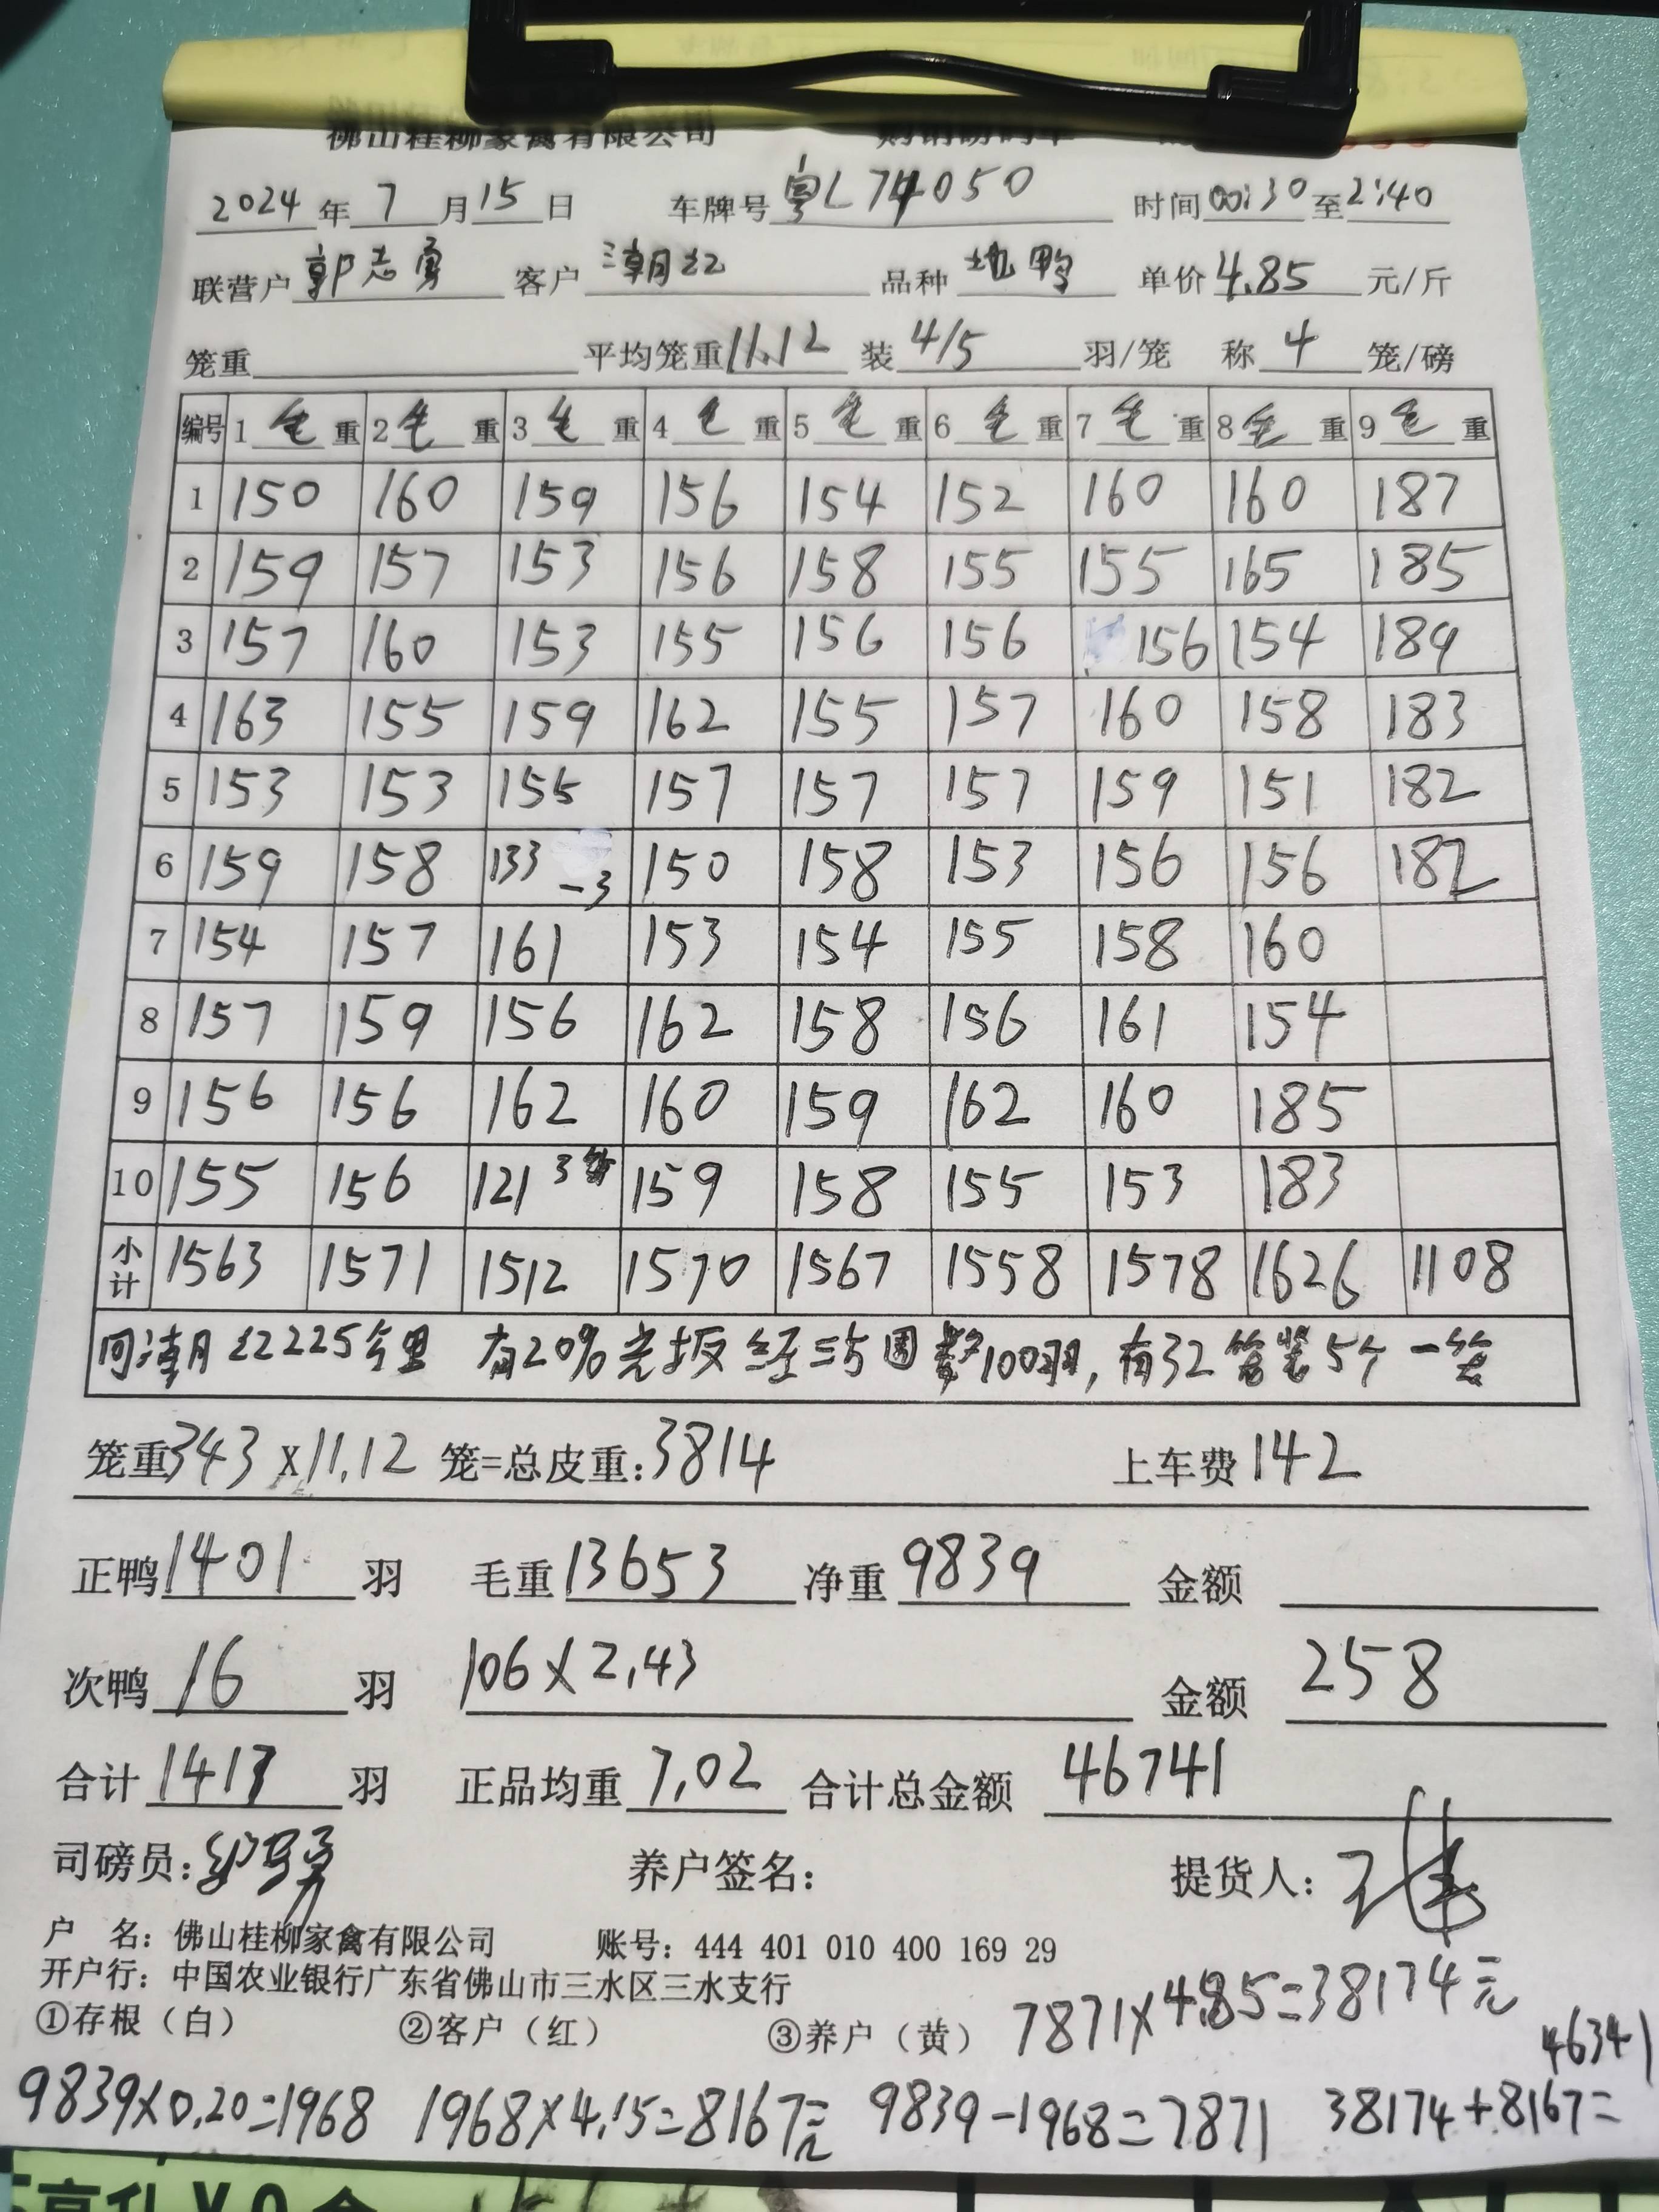 佛山桂柳家禽有限公司 购销磅码单
2024 年 7 月 15 日 车牌号 粤L74050 时间 00:30 至 2:40
联营户 郭志勇 客户 潮红 品种 地鸭 单价 4.85 元/斤
笼重 平均笼重 11.12 装 4/5 羽/笼 称 4 笼/磅
编号 1 毛 重 2 毛 重 3 毛 重 4 毛 重 5 毛 重 6 毛 重 7 毛 重 8 毛 重 9 毛 重
1 150 160 159 156 154 152 160 160 187
2 159 157 153 156 158 155 155 165 185
3 157 160 153 155 156 156 156 154 189
4 163 155 159 162 155 157 160 158 183
5 153 153 155 157 157 157 159 151 182
6 159 158 133 -3 150 158 153 156 156 182
7 154 157 161 153 154 155 158 160
8 157 159 156 162 158 156 161 154
9 156 156 162 160 159 162 160 185
10 155 156 121 3笼 159 158 155 153 183
小计 1563 1571 1512 1570 1567 1558 1578 1626 1108
回潮红225公里 有20%光板 数100羽,有32笼装5个一笼
笼重 343 X 11.12 笼=总皮重: 3814 上车费 142
正鸭 1401 羽 毛重 13653 净重 9839 金额
次鸭 16 羽 106 X 2.43 金额 258
合计 1417 羽 正品均重 7.02 合计总金额 46741
司磅员: 养户签名: 提货人:
户 名: 佛山桂柳家禽有限公司 账号: 444 401 010 400 169 29
开户行: 中国农业银行广东省佛山市三水区三水支行
①存根（白） ②客户（红） ③养户（黄） 7871X4.85=38174元
46341
9839X0.20=1968 1968X4.15=8167元 9839-1968=7871 38174+8167=